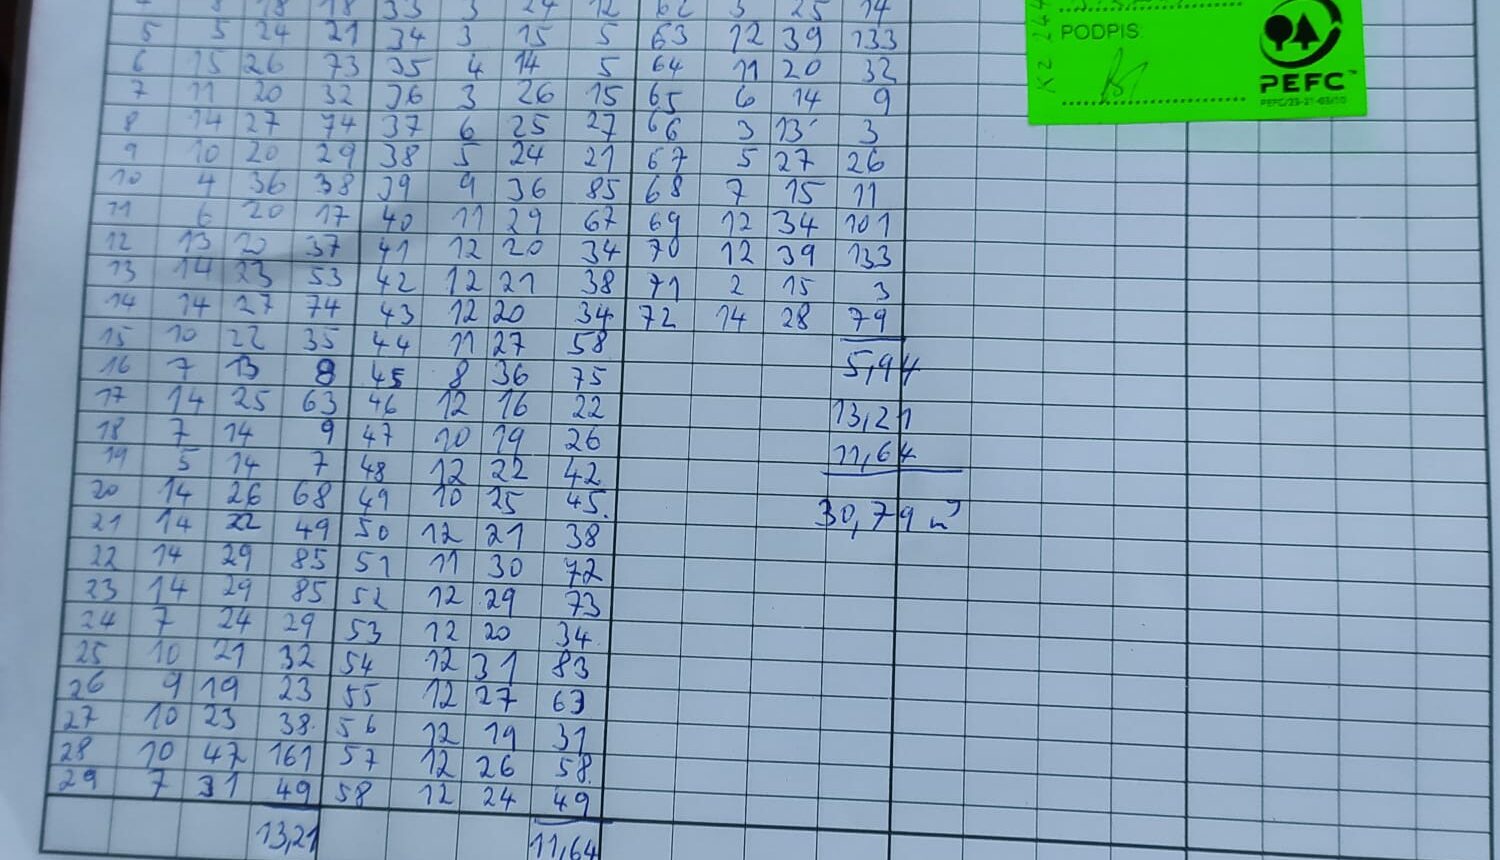 18 18 33 3 24 12 62 3 25 14
5 5 24 21 34 3 15 5 63 12 39 133
6 15 26 73 35 4 14 5 64 11 20 32
7 11 20 32 36 3 26 15 65 6 14 9
8 14 27 74 37 6 25 27 66 3 13 3
9 10 20 29 38 5 24 21 67 5 27 26
10 4 36 38 39 9 36 85 68 7 15 11
11 6 20 17 40 11 29 67 69 12 34 101
12 13 20 37 41 12 20 34 70 12 39 133
13 14 23 53 42 12 21 38 71 2 15 3
14 14 27 74 43 12 20 34 72 14 28 79
15 10 22 35 44 11 27 58
16 7 13 8 45 8 36 75 5,94
17 14 25 63 46 12 16 22 13,21
18 7 14 9 47 10 19 26 11,64
19 5 14 7 48 12 22 42
20 14 26 68 49 10 25 45. 30,79 m³
21 14 22 49 50 12 21 38
22 14 29 85 51 11 30 72
23 14 29 85 52 12 29 73
24 7 24 29 53 12 20 34
25 10 21 32 54 12 31 83
26 9 19 23 55 12 27 63
27 10 23 38 56 12 19 31
28 10 47 161 57 12 26 58
29 7 31 49 58 12 24 49
13,21 11,64
PODPIS
PEFC™